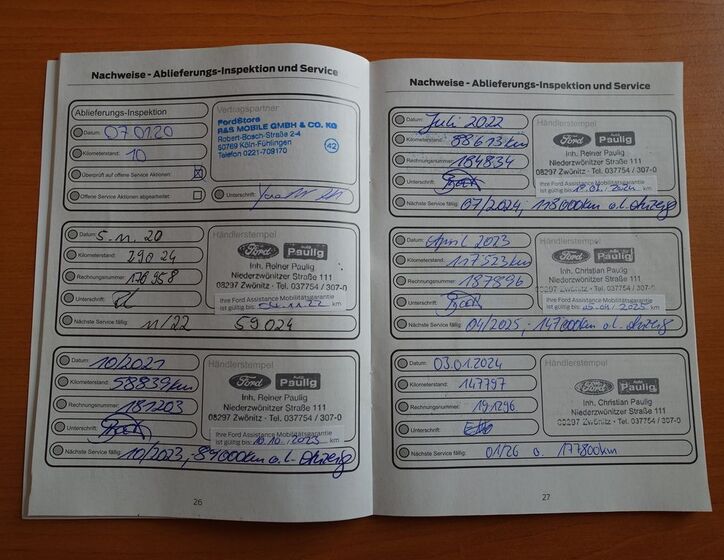 Nachweise - Ablieferungs-Inspektion und Service
Ablieferungs-Inspektion
Datum: 07.01.20
Kilometerstand: 10
Überprüft auf offene Service Aktionen: X
Offene Service Aktionen abgearbeitet:
Vertragspartner
FordStore
R&S MOBILE GMBH & CO. KG
Robert-Bosch-Straße 2-4
50769 Köln-Fühlingen
Telefon 0221-709170
42
Unterschrift:
Datum: 5.11.20
Kilometerstand: 29024
Rechnungsnummer: 176958
Unterschrift:
Nächste Service fällig: 11/22 59024
Händlerstempel
Ford Auto Paulig
Inh. Reiner Paulig
Niederzwönitzer Straße 111
08297 Zwönitz · Tel. 037754 / 307-0
Ihre Ford Assistance Mobilitätsgarantie
ist gültig bis: 04.11.22 km
Datum: 10/2021
Kilometerstand: 58839km
Rechnungsnummer: 181203
Unterschrift:
Nächste Service fällig: 10/2023, 84000km o.l. Anzeig
Händlerstempel
Ford Auto Paulig
Inh. Reiner Paulig
Niederzwönitzer Straße 111
08297 Zwönitz · Tel. 037754 / 307-0
Ihre Ford Assistance Mobilitätsgarantie
ist gültig bis: 10.10.2023 km
26
Nachweise - Ablieferungs-Inspektion und Service
Datum: Juli 2022
Kilometerstand: 88673km
Rechnungsnummer: 184834
Unterschrift:
Nächste Service fällig: 07/2024, 118000km o.l. Anzeig
Händlerstempel
Ford Auto Paulig
Inh. Reiner Paulig
Niederzwönitzer Straße 111
08297 Zwönitz · Tel. 037754 / 307-0
Ihre Ford Assistance Mobilitätsgarantie
ist gültig bis: 2024 km
Datum: April 2023
Kilometerstand: 117523km
Rechnungsnummer: 187896
Unterschrift:
Nächste Service fällig: 04/2025, 147000km o.l. Anzeig
Händlerstempel
Ford Auto Paulig
Inh. Christian Paulig
Niederzwönitzer Straße 111
08297 Zwönitz · Tel. 037754 / 307-0
Ihre Ford Assistance Mobilitätsgarantie
ist gültig bis: 2025 km
Datum: 03.01.2024
Kilometerstand: 147797
Rechnungsnummer: 191296
Unterschrift:
Nächste Service fällig: 01/26 o. 177800km
Händlerstempel
Ford Auto Paulig
Inh. Christian Paulig
Niederzwönitzer Straße 111
08297 Zwönitz · Tel. 037754 / 307-0
27